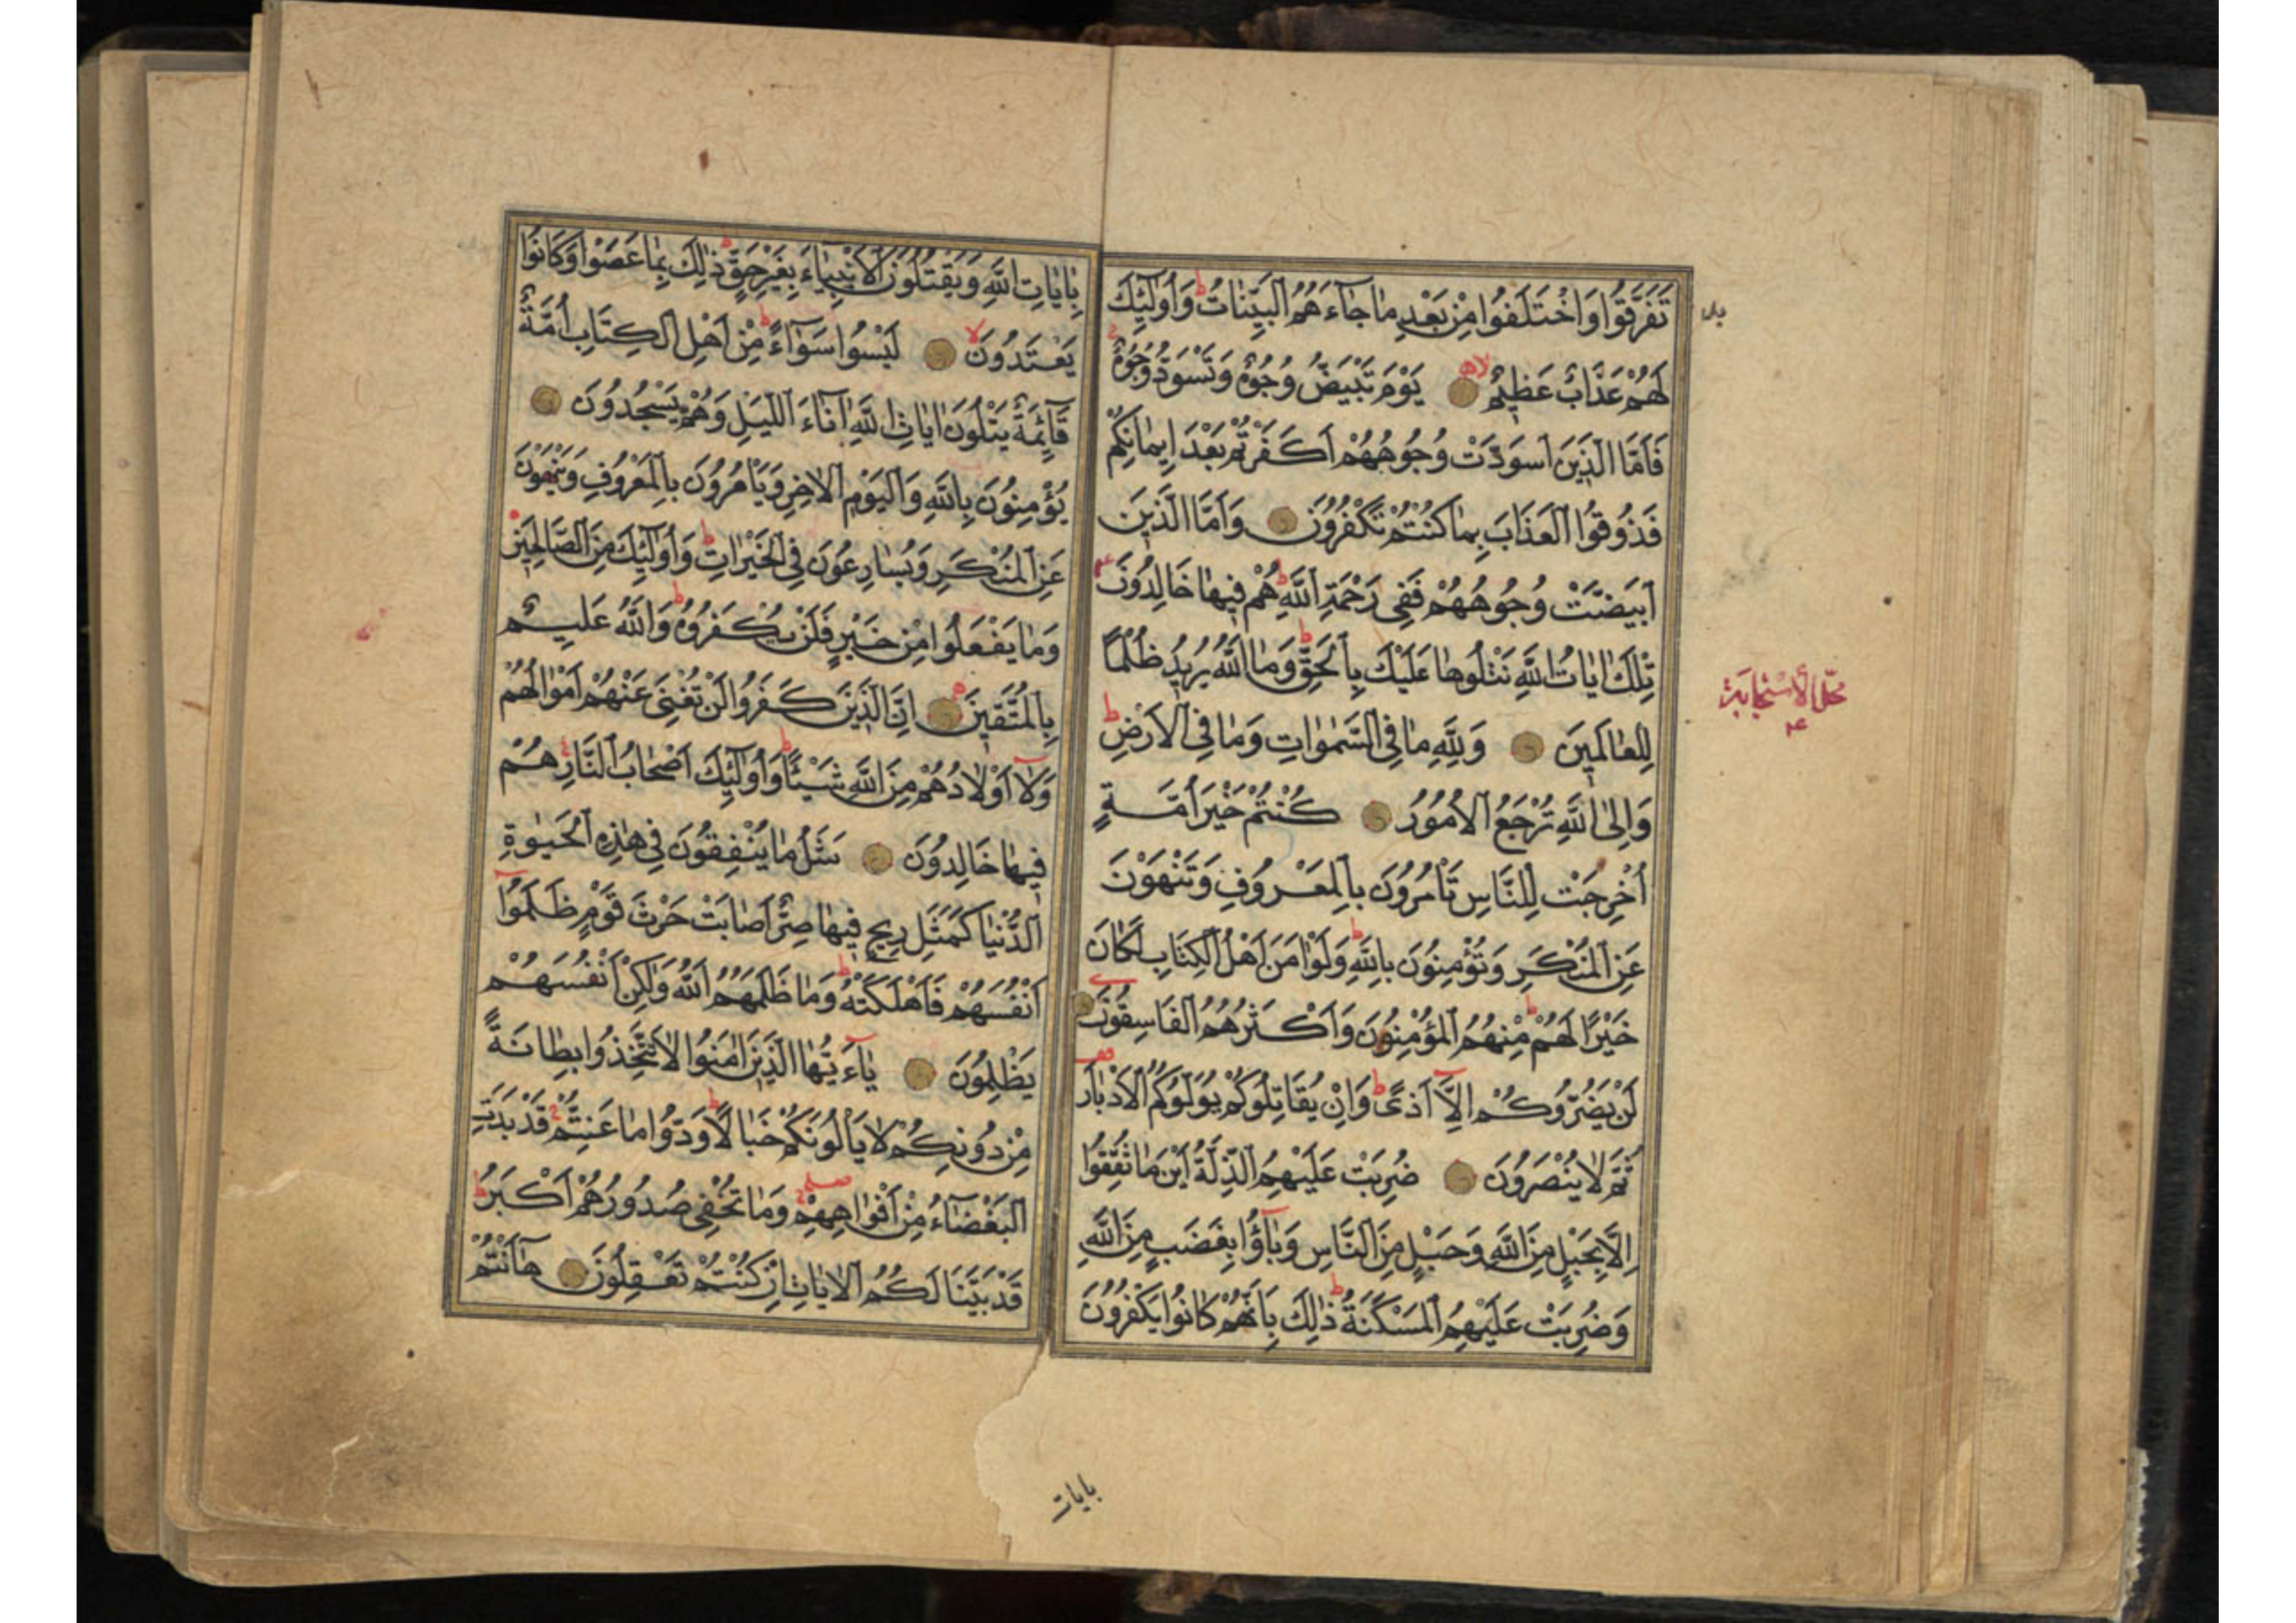 تَفَرَّقُوا وَاخْتَلَفُوا مِنْ بَعْدِ مَا جَآءَهُمُ الْبَيِّنَاتُ ط وَأُولٰٓئِكَ
لَهُمْ عَذَابٌ عَظِيمٌ لا يَوْمَ تَبْيَضُّ وُجُوهٌ وَتَسْوَدُّ وُجُوهٌ
فَأَمَّا الَّذِينَ اسْوَدَّتْ وُجُوهُهُمْ أَكَفَرْتُمْ بَعْدَ إِيمَانِكُمْ
فَذُوقُوا الْعَذَابَ بِمَا كُنْتُمْ تَكْفُرُونَ وَأَمَّا الَّذِينَ
ابْيَضَّتْ وُجُوهُهُمْ فَفِي رَحْمَةِ اللَّهِ ط هُمْ فِيهَا خَالِدُونَ
تِلْكَ اٰيَاتُ اللَّهِ نَتْلُوهَا عَلَيْكَ بِالْحَقِّ ط وَمَا اللَّهُ يُرِيدُ ظُلْمًا
لِلْعَالَمِينَ وَلِلَّهِ مَا فِي السَّمٰوَاتِ وَمَا فِي الْأَرْضِ ط
وَإِلَى اللَّهِ تُرْجَعُ الْأُمُورُ كُنْتُمْ خَيْرَ أُمَّةٍ
أُخْرِجَتْ لِلنَّاسِ تَأْمُرُونَ بِالْمَعْرُوفِ وَتَنْهَوْنَ
عَنِ الْمُنْكَرِ وَتُؤْمِنُونَ بِاللَّهِ ط وَلَوْ اٰمَنَ أَهْلُ الْكِتَابِ لَكَانَ
خَيْرًا لَهُمْ ط مِنْهُمُ الْمُؤْمِنُونَ وَأَكْثَرُهُمُ الْفَاسِقُونَ
لَنْ يَضُرُّوكُمْ إِلَّآ أَذًى ط وَإِنْ يُقَاتِلُوكُمْ يُوَلُّوكُمُ الْأَدْبَارَ
ثُمَّ لَا يُنْصَرُونَ ضُرِبَتْ عَلَيْهِمُ الذِّلَّةُ أَيْنَ مَا ثُقِفُوا
إِلَّا بِحَبْلٍ مِنَ اللَّهِ وَحَبْلٍ مِنَ النَّاسِ وَبَآؤُا بِغَضَبٍ مِنَ اللَّهِ
وَضُرِبَتْ عَلَيْهِمُ الْمَسْكَنَةُ ط ذٰلِكَ بِأَنَّهُمْ كَانُوا يَكْفُرُونَ
محل الاستجابة
بايات
بِاٰيَاتِ اللَّهِ وَيَقْتُلُونَ الْأَنْبِيَآءَ بِغَيْرِ حَقٍّ ط ذٰلِكَ بِمَا عَصَوْا وَكَانُوا
يَعْتَدُونَ لا لَيْسُوا سَوَآءً ط مِنْ أَهْلِ الْكِتَابِ أُمَّةٌ
قَآئِمَةٌ يَتْلُونَ اٰيَاتِ اللَّهِ اٰنَآءَ اللَّيْلِ وَهُمْ يَسْجُدُونَ
يُؤْمِنُونَ بِاللَّهِ وَالْيَوْمِ الْاٰخِرِ وَيَأْمُرُونَ بِالْمَعْرُوفِ وَيَنْهَوْنَ
عَنِ الْمُنْكَرِ وَيُسَارِعُونَ فِي الْخَيْرَاتِ ط وَأُولٰٓئِكَ مِنَ الصَّالِحِينَ
وَمَا يَفْعَلُوا مِنْ خَيْرٍ فَلَنْ يُكْفَرُوهُ ط وَاللَّهُ عَلِيمٌ
بِالْمُتَّقِينَ إِنَّ الَّذِينَ كَفَرُوا لَنْ تُغْنِيَ عَنْهُمْ أَمْوَالُهُمْ
وَلَآ أَوْلَادُهُمْ مِنَ اللَّهِ شَيْئًا ط وَأُولٰٓئِكَ أَصْحَابُ النَّارِ هُمْ
فِيهَا خَالِدُونَ مَثَلُ مَا يُنْفِقُونَ فِي هٰذِهِ الْحَيٰوةِ
الدُّنْيَا كَمَثَلِ رِيحٍ فِيهَا صِرٌّ أَصَابَتْ حَرْثَ قَوْمٍ ظَلَمُوآ
أَنْفُسَهُمْ فَأَهْلَكَتْهُ ط وَمَا ظَلَمَهُمُ اللَّهُ وَلٰكِنْ أَنْفُسَهُمْ
يَظْلِمُونَ يَآءَيُّهَا الَّذِينَ اٰمَنُوا لَا تَتَّخِذُوا بِطَانَةً
مِنْ دُونِكُمْ لَا يَأْلُونَكُمْ خَبَالًا ط وَدُّوا مَا عَنِتُّمْ قَدْ بَدَتِ
الْبَغْضَآءُ مِنْ أَفْوَاهِهِمْ وَمَا تُخْفِي صُدُورُهُمْ أَكْبَرُ ط
قَدْ بَيَّنَّا لَكُمُ الْاٰيَاتِ إِنْ كُنْتُمْ تَعْقِلُونَ هَآأَنْتُمْ